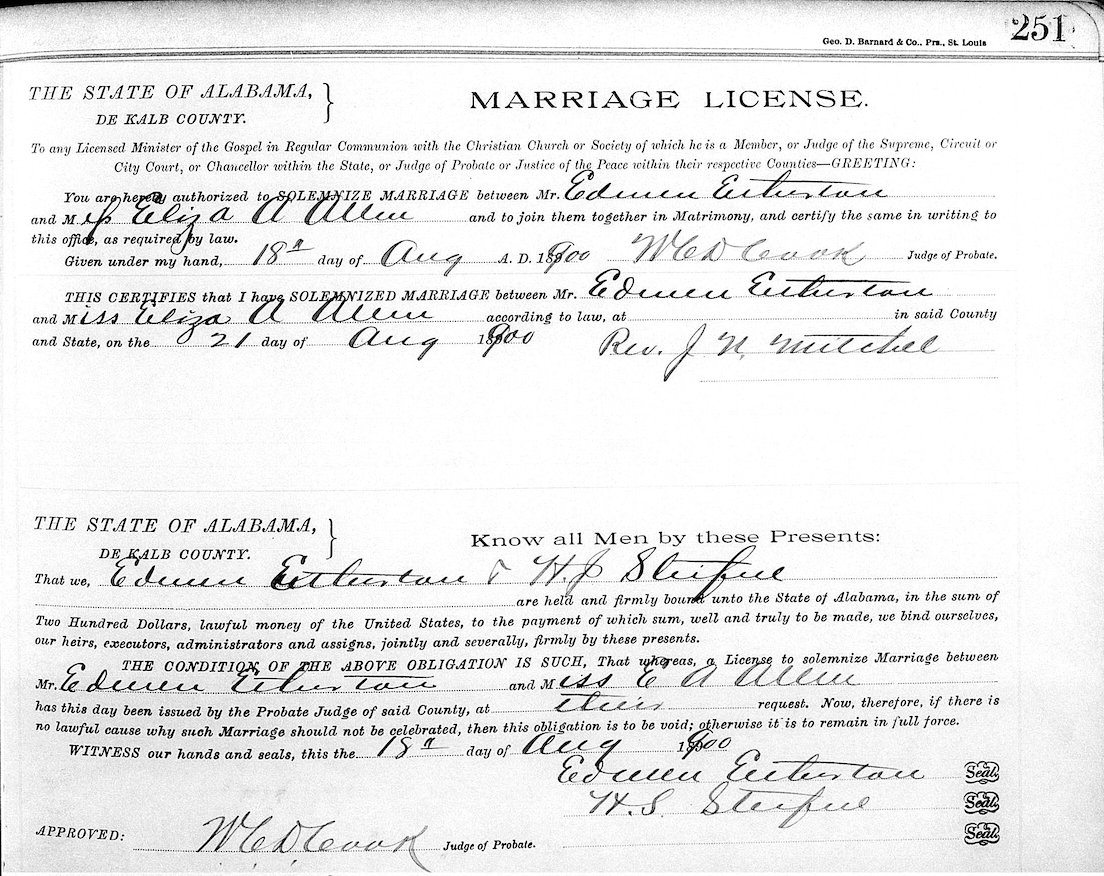 Geo. D. Barnard & Co., Prs., St. Louis 251
THE STATE OF ALABAMA,
DE KALB COUNTY.
MARRIAGE LICENSE.
To any Licensed Minister of the Gospel in Regular Communion with the Christian Church or Society of which he is a Member, or Judge of the Supreme, Circuit or
City Court, or Chancellor within the State, or Judge of Probate or Justice of the Peace within their respective Counties—GREETING:
You are hereby authorized to SOLEMNIZE MARRIAGE between Mr. Edmen Etherton
and Miss Eliza A Allen and to join them together in Matrimony, and certify the same in writing to
this office, as required by law.
Given under my hand, 18th day of Aug A. D. 1900 W C D Cook Judge of Probate.
THIS CERTIFIES that I have SOLEMNIZED MARRIAGE between Mr. Edmen Etherton
and Miss Eliza A Allen according to law, at in said County
and State, on the 21 day of Aug 1900 Rev. J N. Mitchell
THE STATE OF ALABAMA,
DE KALB COUNTY.
Know all Men by these Presents:
That we, Edmen Etherton & H J
are held and firmly bound unto the State of Alabama, in the sum of
Two Hundred Dollars, lawful money of the United States, to the payment of which sum, well and truly to be made, we bind ourselves,
our heirs, executors, administrators and assigns, jointly and severally, firmly by these presents.
THE CONDITION OF THE ABOVE OBLIGATION IS SUCH, That whereas, a License to solemnize Marriage between
Mr. Edmen Etherton and Miss E A Allen
has this day been issued by the Probate Judge of said County, at their request. Now, therefore, if there is
no lawful cause why such Marriage should not be celebrated, then this obligation is to be void; otherwise it is to remain in full force.
WITNESS our hands and seals, this the 18th day of Aug 1900
Edmen Etherton Seal.
H. S. Seal.
Seal.
APPROVED: W C D Cook Judge of Probate.